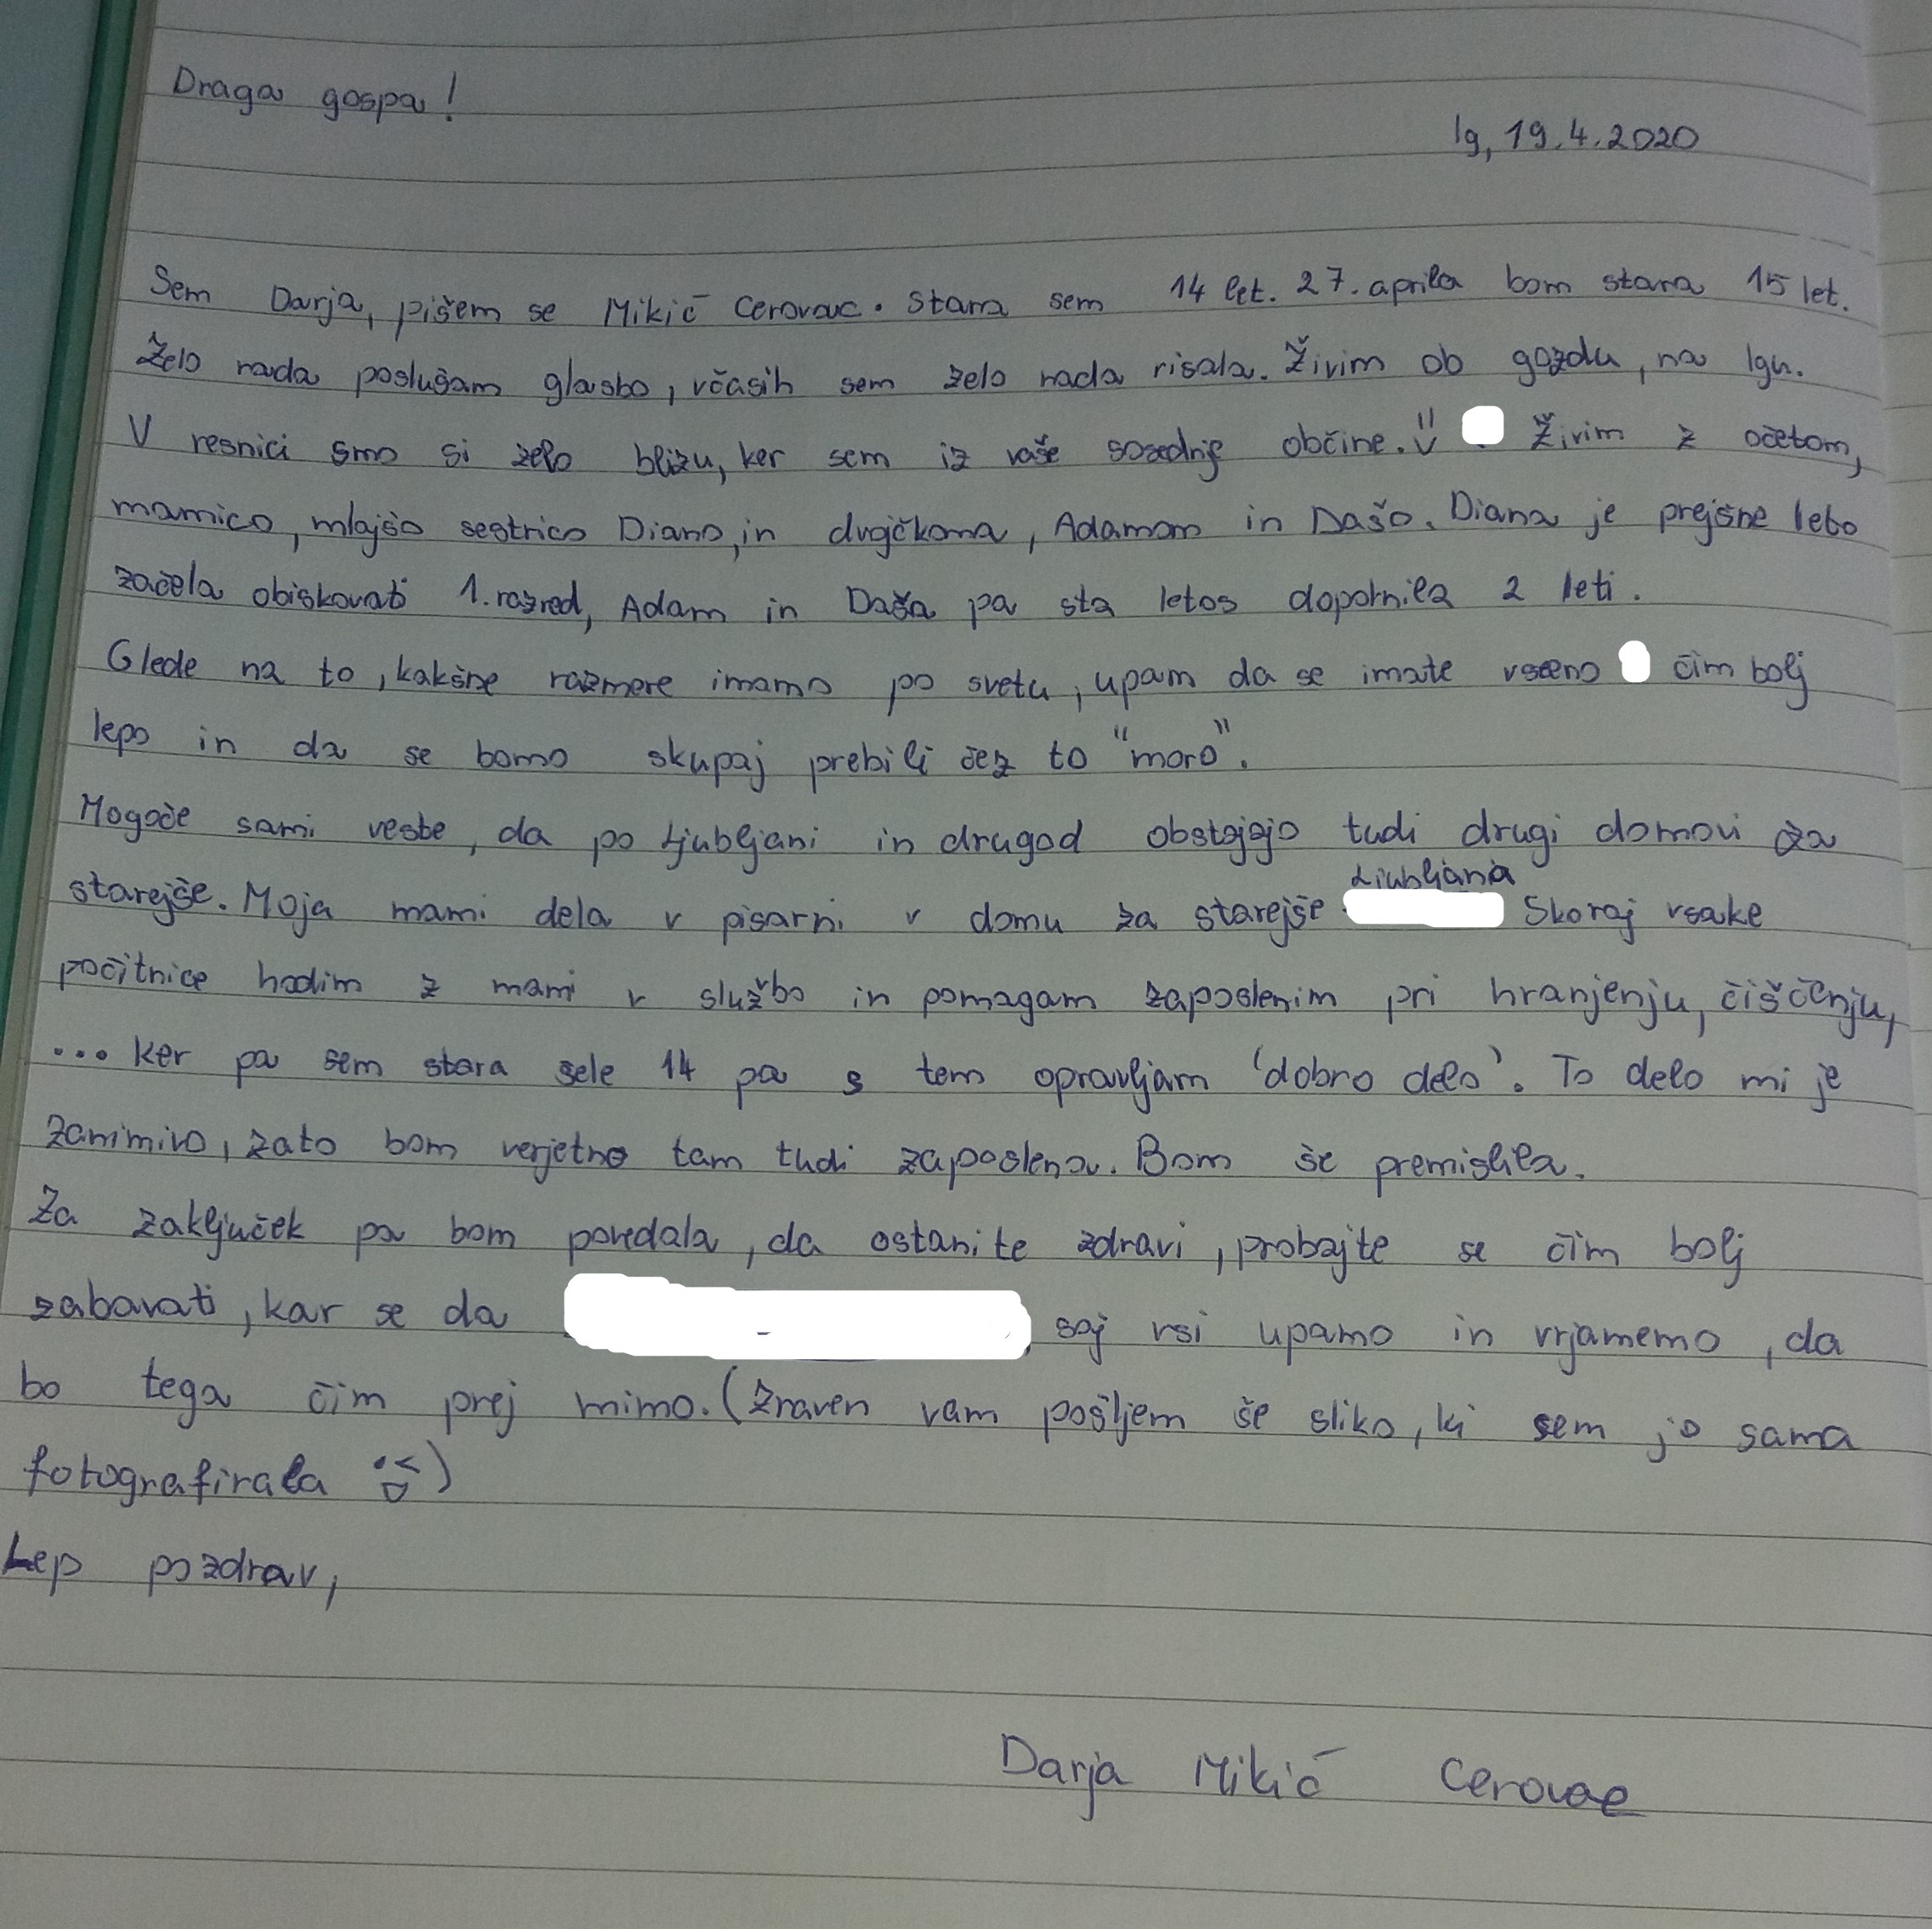 Draga gospa!
Ig, 19.4.2020
Sem Darja, pišem se Mikić Cerovac. Stara sem 14 let. 27. aprila bom stara 15 let.
Zelo rada poslušam glasbo, včasih sem zelo rada risala. Živim ob gozdu, na Igu.
V resnici smo si zelo blizu, ker sem iz vaše sosednje občine. Živim z očetom,
mamico, mlajšo sestrico Diano, in dvojčkoma, Adamom in Dašo. Diana je prejšne leto
začela obiskovati 1. razred, Adam in Daša pa sta letos dopolnila 2 leti.
Glede na to, kakšne razmere imamo po svetu, upam da se imate vseeno čim bolj
lepo in da se bomo skupaj prebili čez to "moro".
Mogoče sami veste, da po Ljubljani in drugod obstajajo tudi drugi domovi za
starejše. Moja mami dela v pisarni v domu za starejše Ljubljana Skoraj vsake
počitnice hodim z mami v službo in pomagam zaposlenim pri hranjenju, čiščenju,
... ker pa sem stara šele 14 pa s tem opravljam 'dobro delo'. To delo mi je
zanimivo, zato bom verjetno tam tudi zaposlena. Bom še premislila.
Za zaključek pa bom povedala, da ostanite zdravi, probajte se čim bolj
zabavati, kar se da saj vsi upamo in vrjamemo, da
bo tega čim prej mimo. (Zraven vam pošljem še sliko, ki sem jo sama
fotografirala)
Lep pozdrav,
Darja Mikić Cerovac